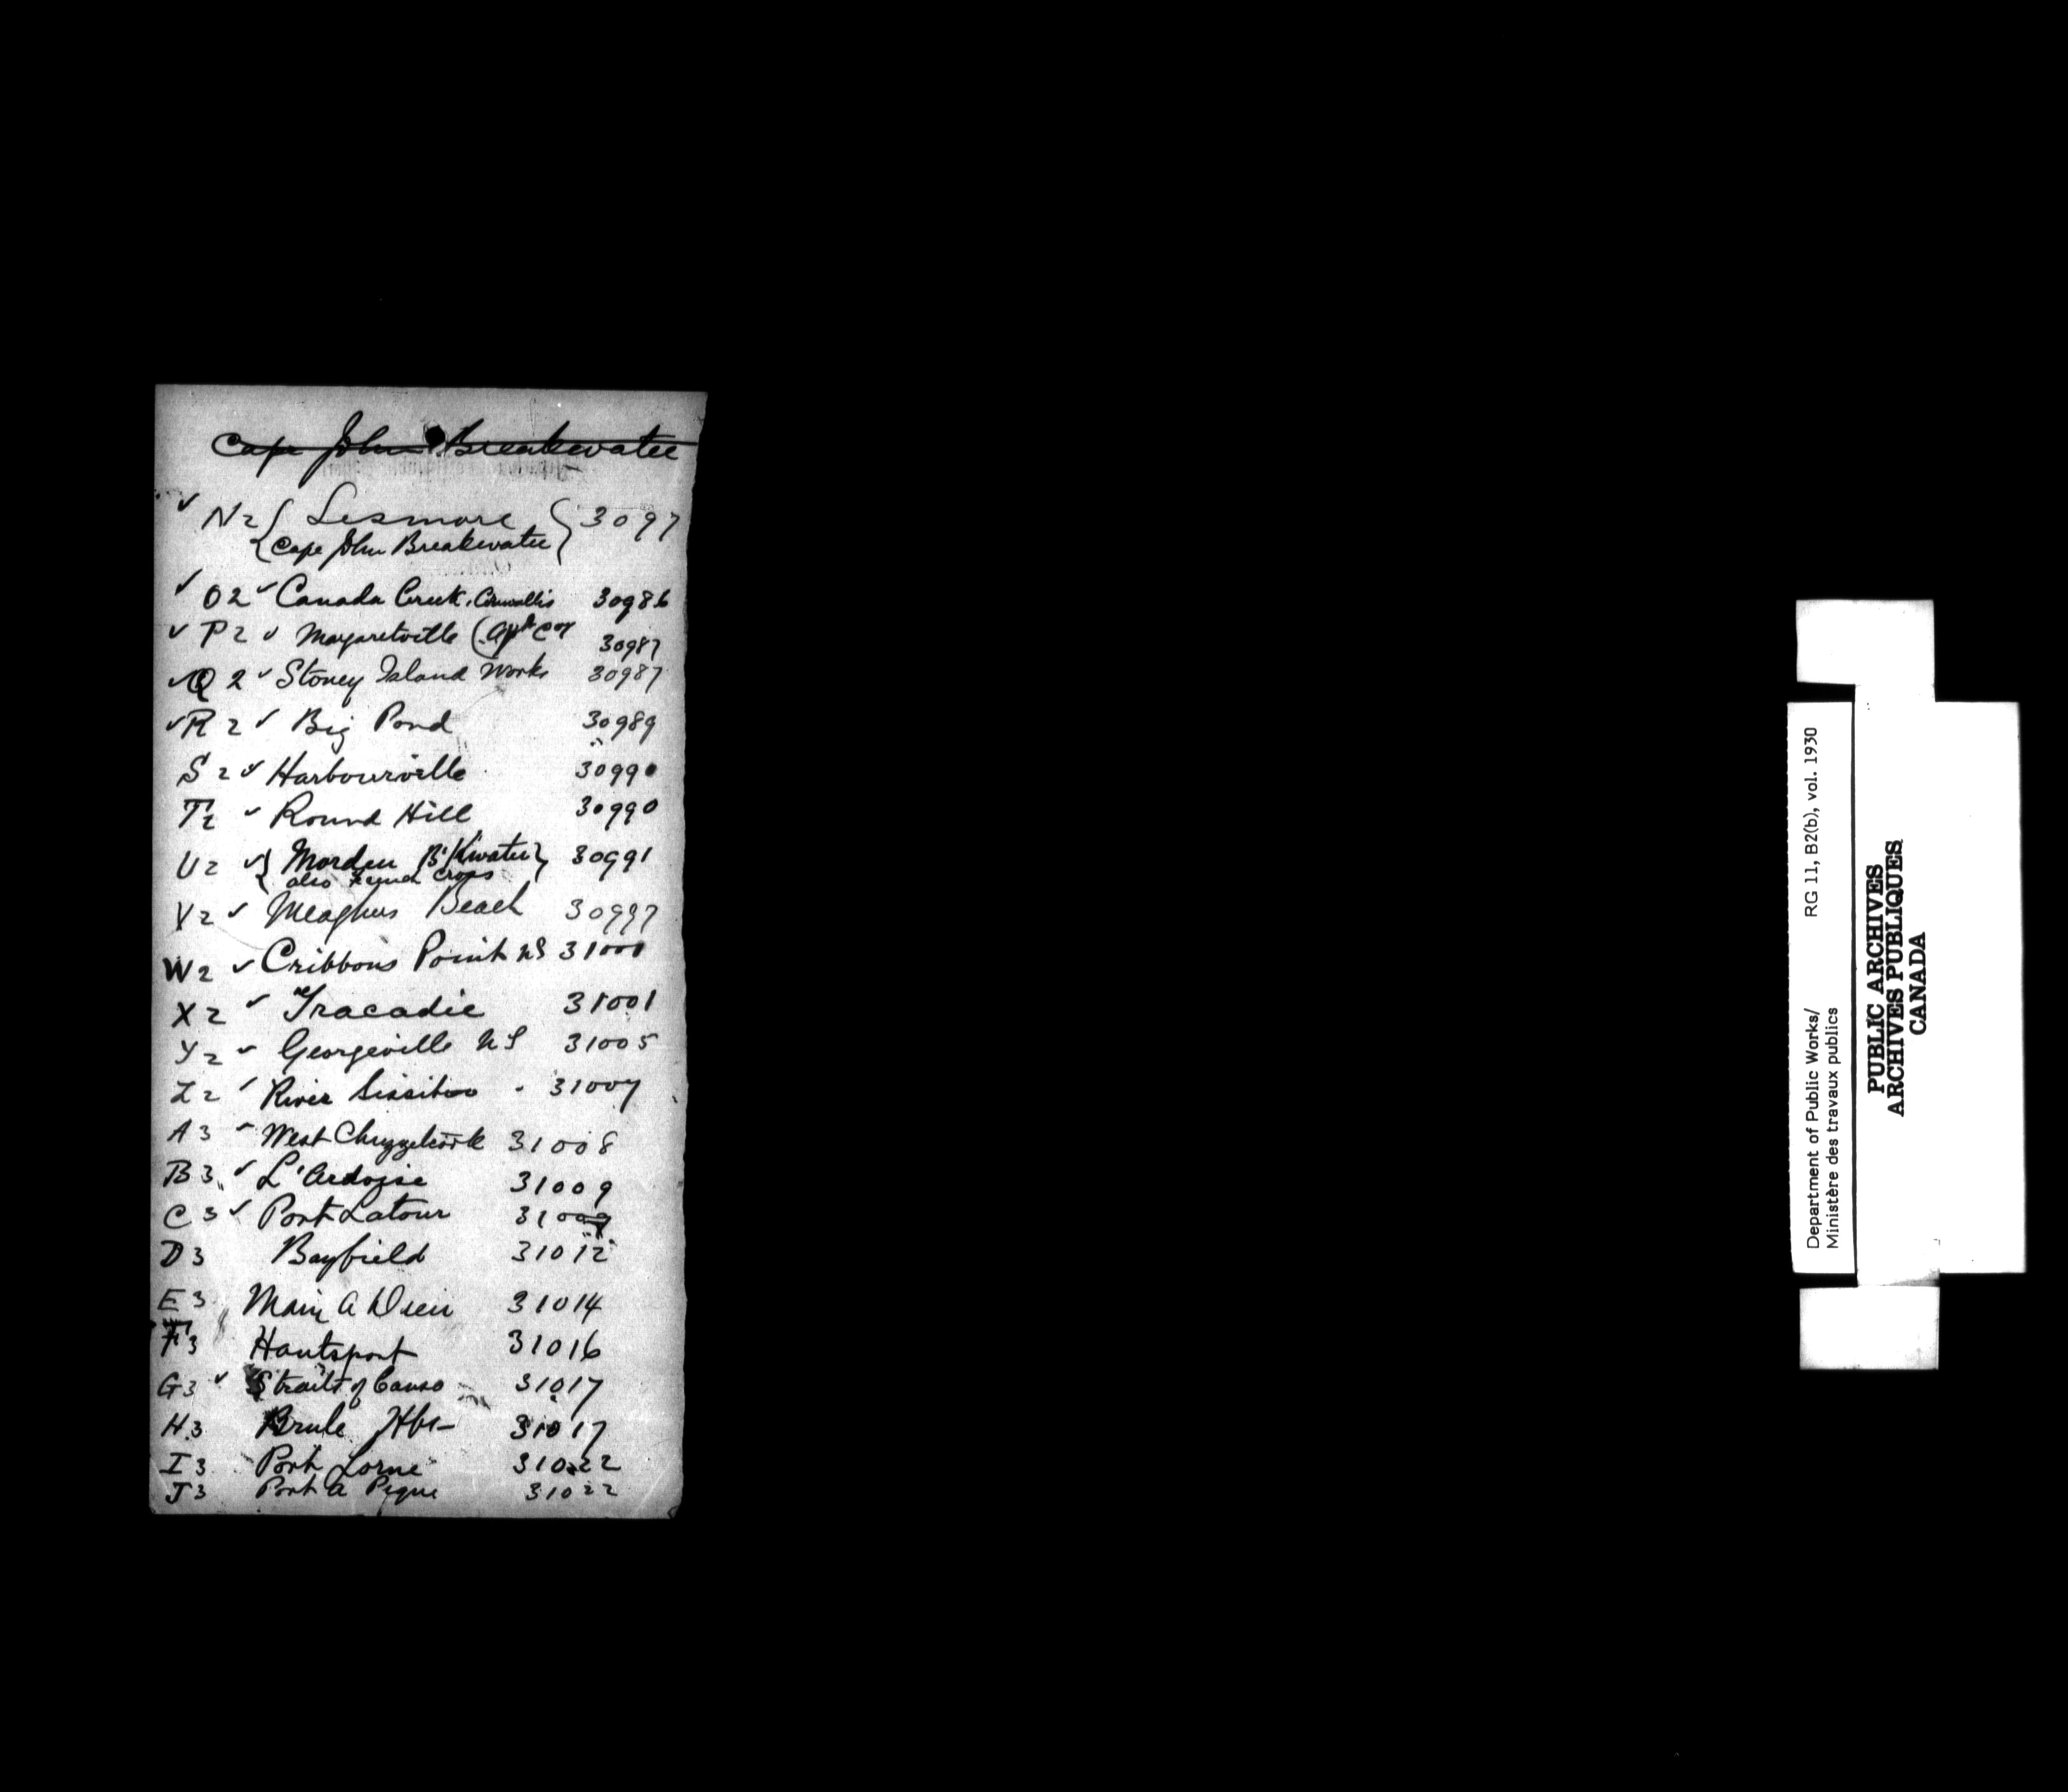 Cape John Breakwater
✓ N2 { Lismore } 3097
{ Cape John Breakwater }
✓ O2 ✓ Canada Creek. Cornwallis 30986
✓ P2 ✓ Margaretville ( 30987
✓ Q2 ✓ Stoney Island Works 30987
✓ R2 ✓ Big Pond 30989
S2 ✓ Harbourville 30990
T2 ✓ Round Hill 30990
U2 ✓ { Morden B'kwater } 30991
{ also French Cross
V2 ✓ Meaghers Beach 30997
W2 ✓ Cribbons Point NS 31000
X2 ✓ Tracadie 31001
Y2 ✓ Georgeville NS 31005
Z2 ✓ River Sissiboo - 31007
A3 ✓ West Chezzetcook 31008
B3 ✓ L'Ardoise 31009
C3 ✓ Port Latour 31009
D3 Bayfield 31012
E3 Main A Dieu 31014
F3 Hantsport 31016
G3 ✓ Straits of Canso 31017
H.3 Brule Hbr 31017
I3 Port Lorne 31022
J3 Port a Pique 31022
Department of Public Works/ RG 11, B2(b), vol. 1930
Ministère des travaux publics
PUBLIC ARCHIVES
ARCHIVES PUBLIQUES
CANADA